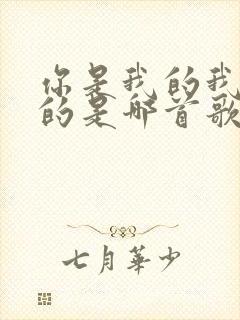 你是我的我
的是哪首歌
七月華少